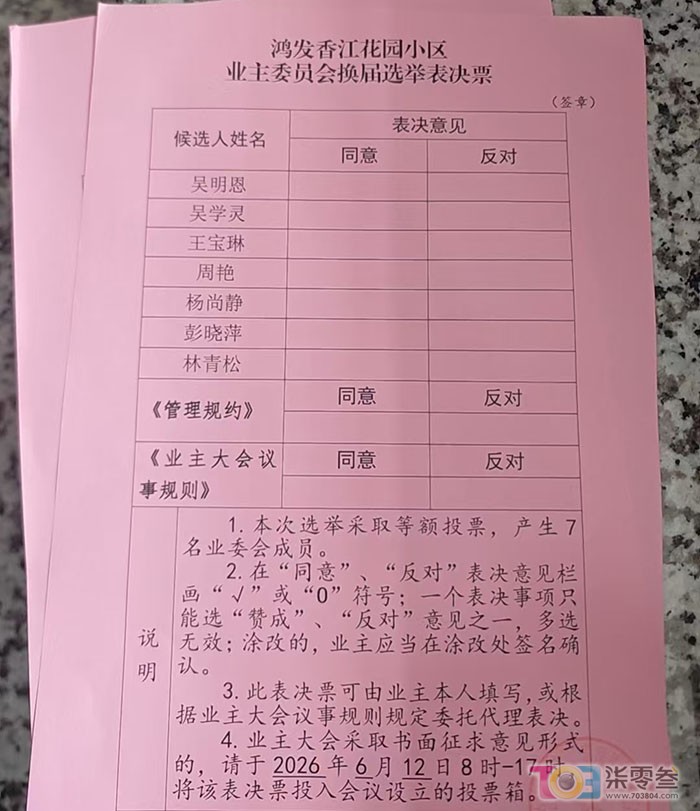 鸿发香江花园小区
业主委员会换届选举表决票
（签章）
候选人姓名
表决意见
同意
反对
吴明恩
吴学灵
王宝琳
周艳
杨尚静
彭晓萍
林青松
《管理规约》
同意
反对
《业主大会议
事规则》
同意
反对
说
明
1. 本次选举采取等额投票，产生7
名业委会成员。
2. 在“同意”、“反对”表决意见栏
画“√”或“O”符号；一个表决事项只
能选“赞成”、“反对”意见之一，多选
无效；涂改的，业主应当在涂改处签名确
认。
3. 此表决票可由业主本人填写，或根
据业主大会议事规则规定委托代理表决。
4. 业主大会采取书面征求意见形式
的，请于2026年6月12日8时-17时，
将该表决票投入会议设立的投票箱。
T703 柒零叁
www.703804.com